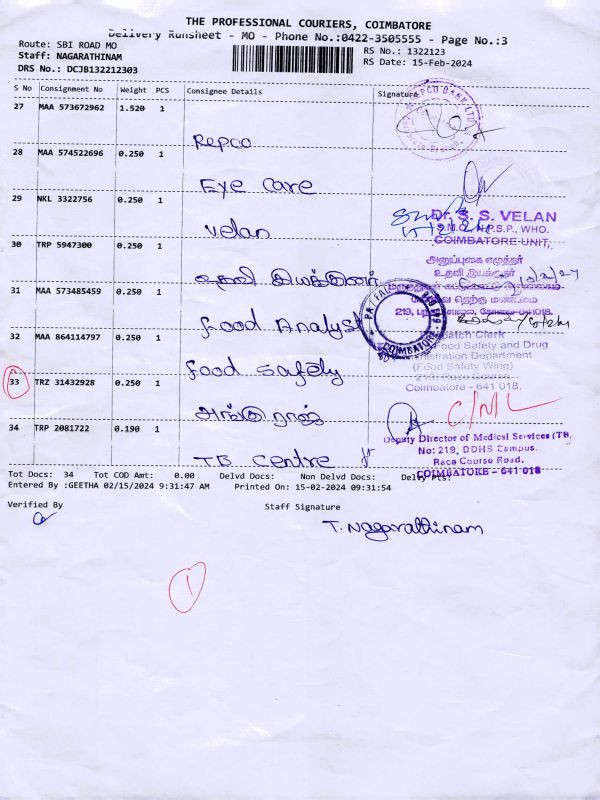 THE PROFESSIONAL COURIERS, COIMBATORE
Delivery Runsheet - MO - Phone No.:0422-3505555 - Page No.:3
Route: SBI ROAD MO
Staff: NAGARATHINAM
DRS No.: DCJB132212303
RS No.: 1322123
RS Date: 15-Feb-2024
S No Consignment No Weight PCS Consignee Details Signature
27 MAA 573672962 1.520 1
Repco
28 MAA 574522696 0.250 1
Eye Care
29 NKL 3322756 0.250 1
Velan
Dr. S. S. VELAN
S.M.O. N.P.S.P., WHO.
COIMBATORE UNIT,
30 TRP 5947300 0.250 1
உதவி இயக்குனர்
அனுப்புகை எழுத்தர்
உதவி இயக்குநர்
31 MAA 573485459 0.250 1
Food Analyst
தெற்கு மண்டலம்
COIMBATORE
32 MAA 864114797 0.250 1
Food Safety
Food Safety and Drug
Administration Department
(Food Safety Wing)
Coimbatore - 641 018.
33 TRZ 31432928 0.250 1
அங்குராஜ்
C/NL
34 TRP 2081722 0.190 1
TB Centre
Deputy Director of Medical Services (TB)
No: 219, DDHS Campus.
Race Course Road.
COIMBATORE - 641 018
Tot Docs: 34 Tot COD Amt: 0.00 Delvd Docs: Non Delvd Docs: Delby Pts:
Entered By :GEETHA 02/15/2024 9:31:47 AM Printed On: 15-02-2024 09:31:54
Verified By Staff Signature
T. Nagarathinam
1